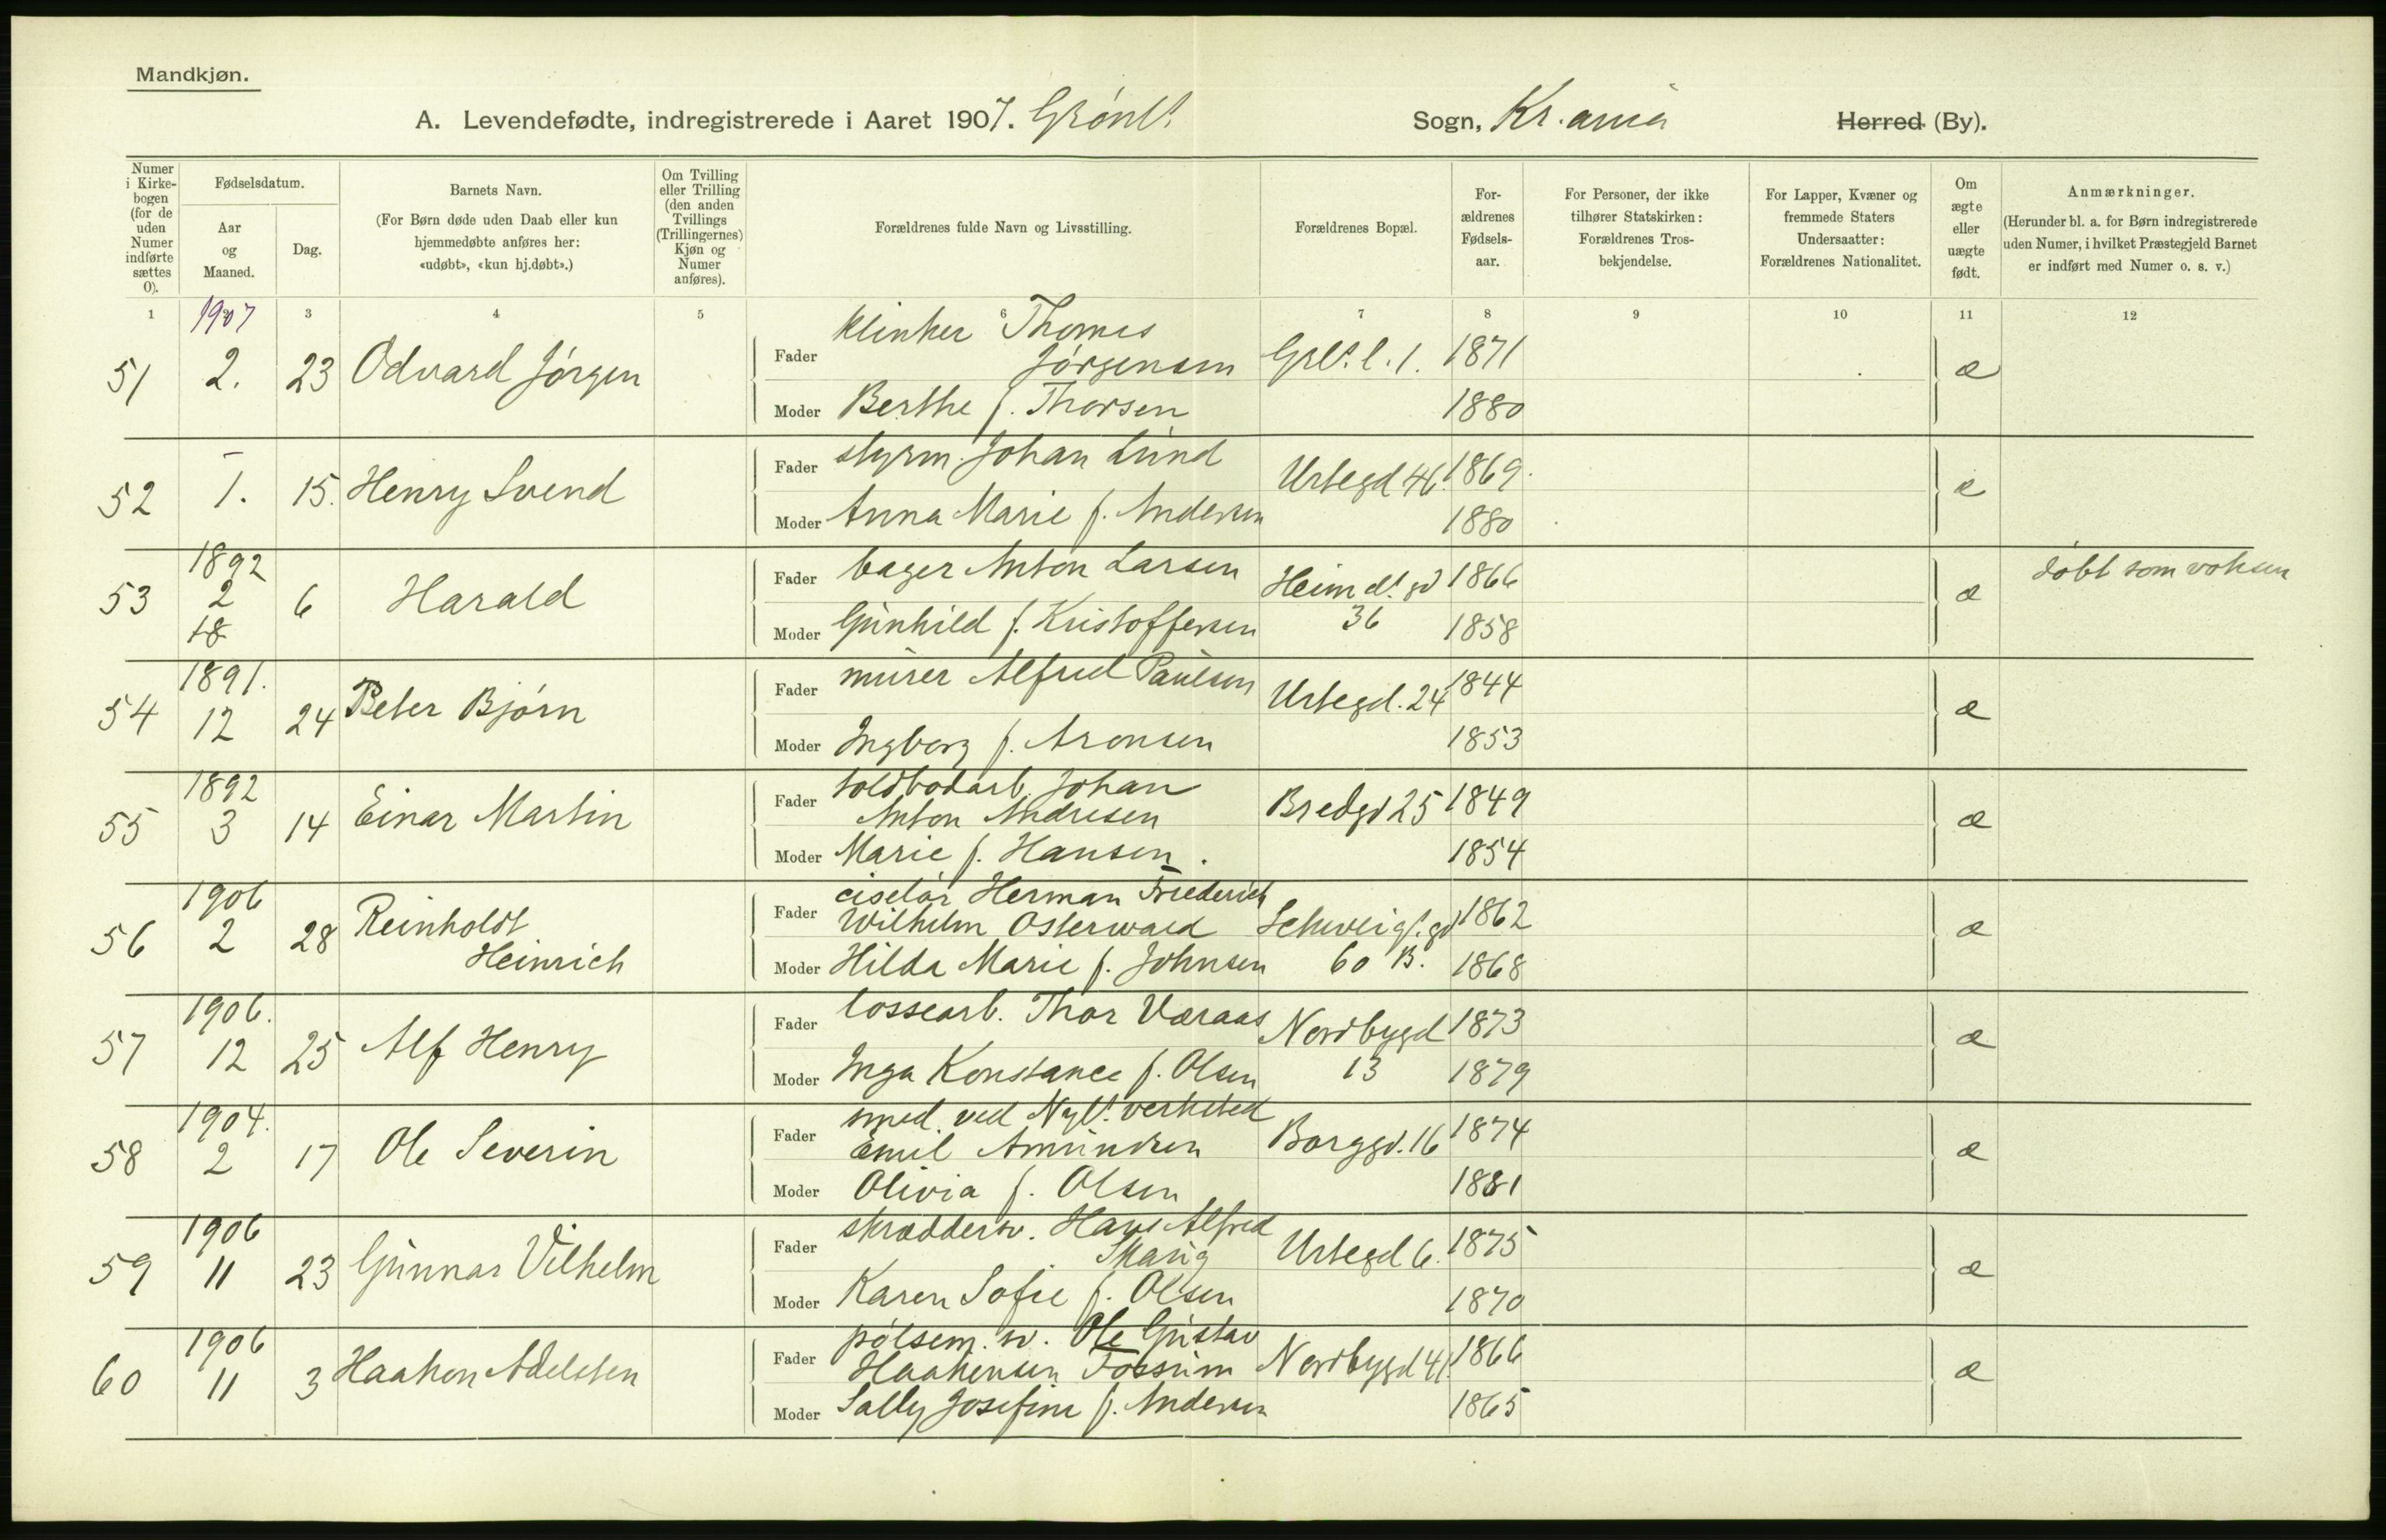 Mandkjøn.
A. Levendefødte, indregistrerede i Aaret 1907. Grønl. Sogn, Kr.ania Herred (By).
Numer i Kirkebogen (for de uden Numer indførte sættes 0).
Fødselsdatum.
Aar og Maaned.
Dag.
Barnets Navn.
(For Børn døde uden Daab eller kun hjemmedøbte anføres her: «udøbt», «kun hj.døbt».)
Om Tvilling eller Trilling (den anden Tvillings (Trillingernes) Kjøn og Numer anføres).
Forældrenes fulde Navn og Livsstilling.
Forældrenes Bopæl.
Forældrenes Fødselsaar.
For Personer, der ikke tilhører Statskirken: Forældrenes Trosbekjendelse.
For Lapper, Kvæner og fremmede Staters Undersaatter: Forældrenes Nationalitet.
Om ægte eller uægte født.
Anmærkninger.
(Herunder bl. a. for Børn indregistrerede uden Numer, i hvilket Præstegjeld Barnet er indført med Numer o. s. v.)
1 2 3 4 5 6 7 8 9 10 11 12
1907
51 2. 23 Odvard Jørgen Fader klinker Thomas Jørgensen Grl. l. 1. 1871 æ
Moder Berthe f. Thorsen 1880
52 – 1. 15. Henry Svend Fader styrm. Johan Lund Urtegd 46. 1869. æ
Moder Anna Marie f. Andersen 1880
53 1892 2 18 6 Harald Fader bager Anton Larsen Heimd. gd 36 1866 æ døbt som voksen
Moder Gunhild f. Kristoffersen 1858
54 1891. 12 24 Peter Bjørn Fader murer Alfred Paulsen Urtegd. 24 1844 æ
Moder Ingborg f. Aronsen 1853
55 1892 3 14 Einar Martin Fader toldbodarb. Johan Anton Andresen Bredgd 25 1849 æ
Moder Marie f. Hansen. 1854
56 1906 2 28 Reinholdt Heinrich Fader ciselør Herman Friederich Wilhelm Osterwald Schweig. gd 60 B. 1862 æ
Moder Hilda Marie f. Johnsen 1868
57 1906. 12 25 Alf Henry Fader lossearb. Thor Væraas Nordbygd 13 1873 æ
Moder Inga Konstance f. Olsen 1879
58 1904. 2 17 Ole Severin Fader smed ved Nyl. verksted Emil Amundsen Borggd. 16 1874 æ
Moder Olivia f. Olsen 1881
59 1906 11 23 Gunnar Vilhelm Fader skræddersv. Hans Alfred Skaug Urtegd 6. 1875 æ
Moder Karen Sofie f. Olsen 1870
60 1906 11 3 Haakon Adelsten Fader pølsem. sv. Ole Gustav Haakensen Fossum Nordbygd 41. 1866 æ
Moder Sally Josefine f. Andersen 1865